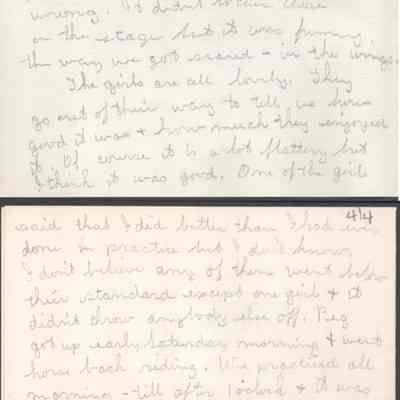 wrong. It didn't bother these
on the stage but it was funny
the way we got scared - in the wings.
The girls are all lovely. They
go out of their way to tell us how
good it was & how much they enjoyed
it. Of course it is a lot flattery but
I think it was good. One of the girls
4/4
said that I did better than I had ever
done in practice but I don't know.
I don't believe any of them went below
their standard except one girl & it
didn't throw anybody else off. Peg
got up early Saturday morning & went
horse back riding. We practiced all
morning - till after 1 o'clock & it was